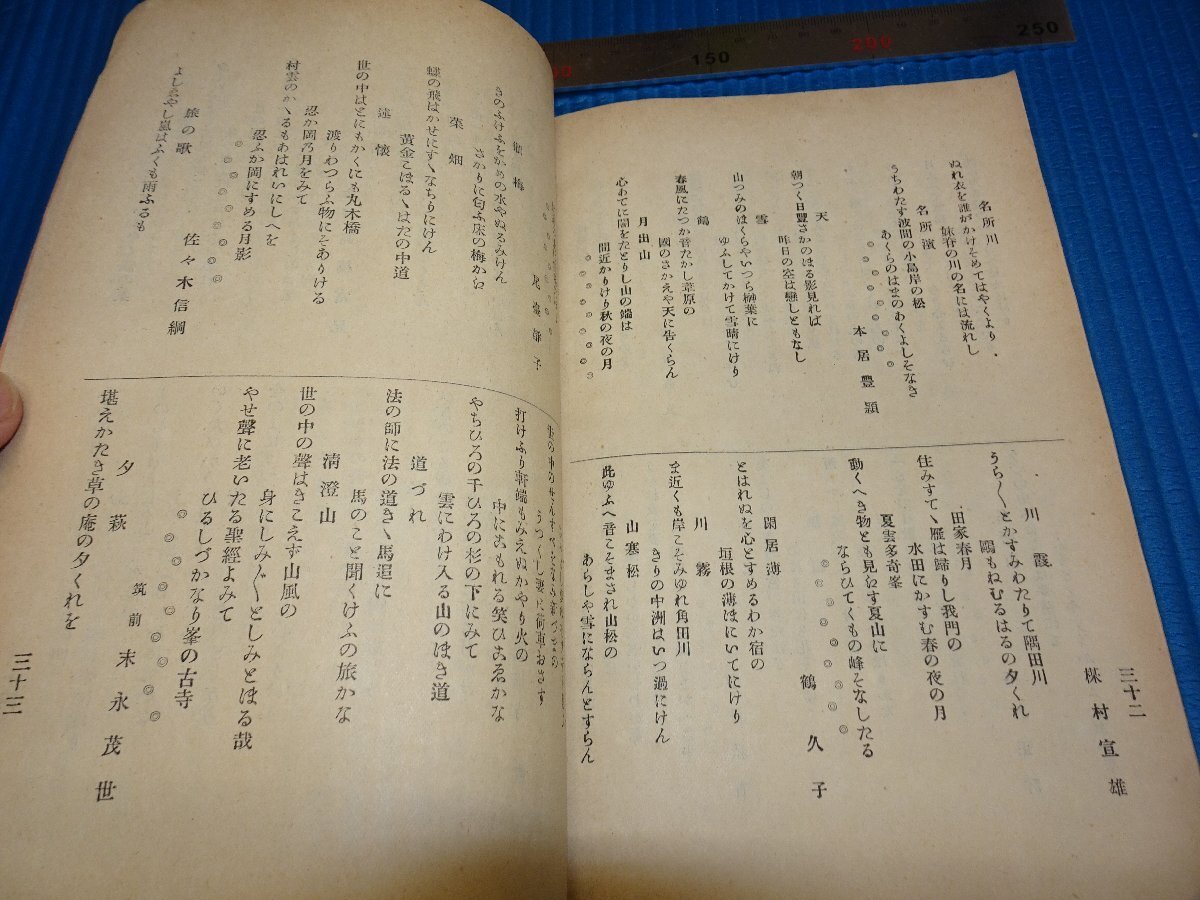 三十二
名所川
ぬれ衣を誰がかけそめてはやくより、
妹脊の川の名には流れし
名所濱
うちわたす波間の小島岸の松
あくらのはまのあくよしそなき
◎◎◎◎◎◎
本居豊穎
天
朝つく日豐さかのほる影見れば
昨日の空は戀しともなし
雪
山つみのほくらやいつら榊葉に
ゆふしてかけて雪晴にけり
鶴
春風にたつか音たかし葦原の
國のさかえや天に告くらん
月出山
心あてに闇をたとりし山の端は
間近かりけり秋の夜の月
◎◎◎◎◎◎
村宣雄
川霞
うら〱とかすみわたりて隅田川
鷗もねむるはるの夕くれ
田家春月
住みすてゝ雁は歸りし我門の
水田にかすむ春の夜の月
夏雲多奇峯
動くへき物とも見えす夏山に
ならひてくもの峰そなしたる
◎◎◎◎◎◎
鶴久子
閑居薄
とはれぬを心とすめるわか宿の
垣根の薄ほにいてにけり
川霧
ま近くも岸こそみゆれ角田川
きりの中洲はいつ過にけん
山寒松
此ゆふへ音こそまされ山松の
あらしや雪にならんとすらん
子
梅
きのふけふをかめの水やぬるみけん
さかりに匂ふ床の梅かえ
菜畑
蝶の飛はかせにすゝなちりにけん
黃金こほるゝはたの中道
述懷
世の中はとにもかくにも丸木橋
渡りわつらふ物にそありける
忍か岡乃月をみて
村雲のかゝるもあはれいにしへを
忍ふか岡にすめる月影
◎◎◎◎◎◎
佐々木信綱
旅の歌
よしゑやし嵐はふくも雨ふるも
うつくし妻に荷車おさす
打けふり軒端もみえぬかやり火の
中にこもれる笑ひこゑかな
やちひろの千ひろの杉の下にみて
雲にわけ入る山のほき道
道づれ
法の師に法の道きゝ馬追に
馬のこと聞くけふの旅かな
淸澄山
世の中の聲はきこえず山風の
身にしみ〲としみとほる哉
やせ聲に老いたる聖經よみて
ひるしづかなり峯の古寺
◎◎◎◎◎◎
筑前 末永茂世
夕萩
堪えかたき草の庵の夕くれを
三十三
150
200
250